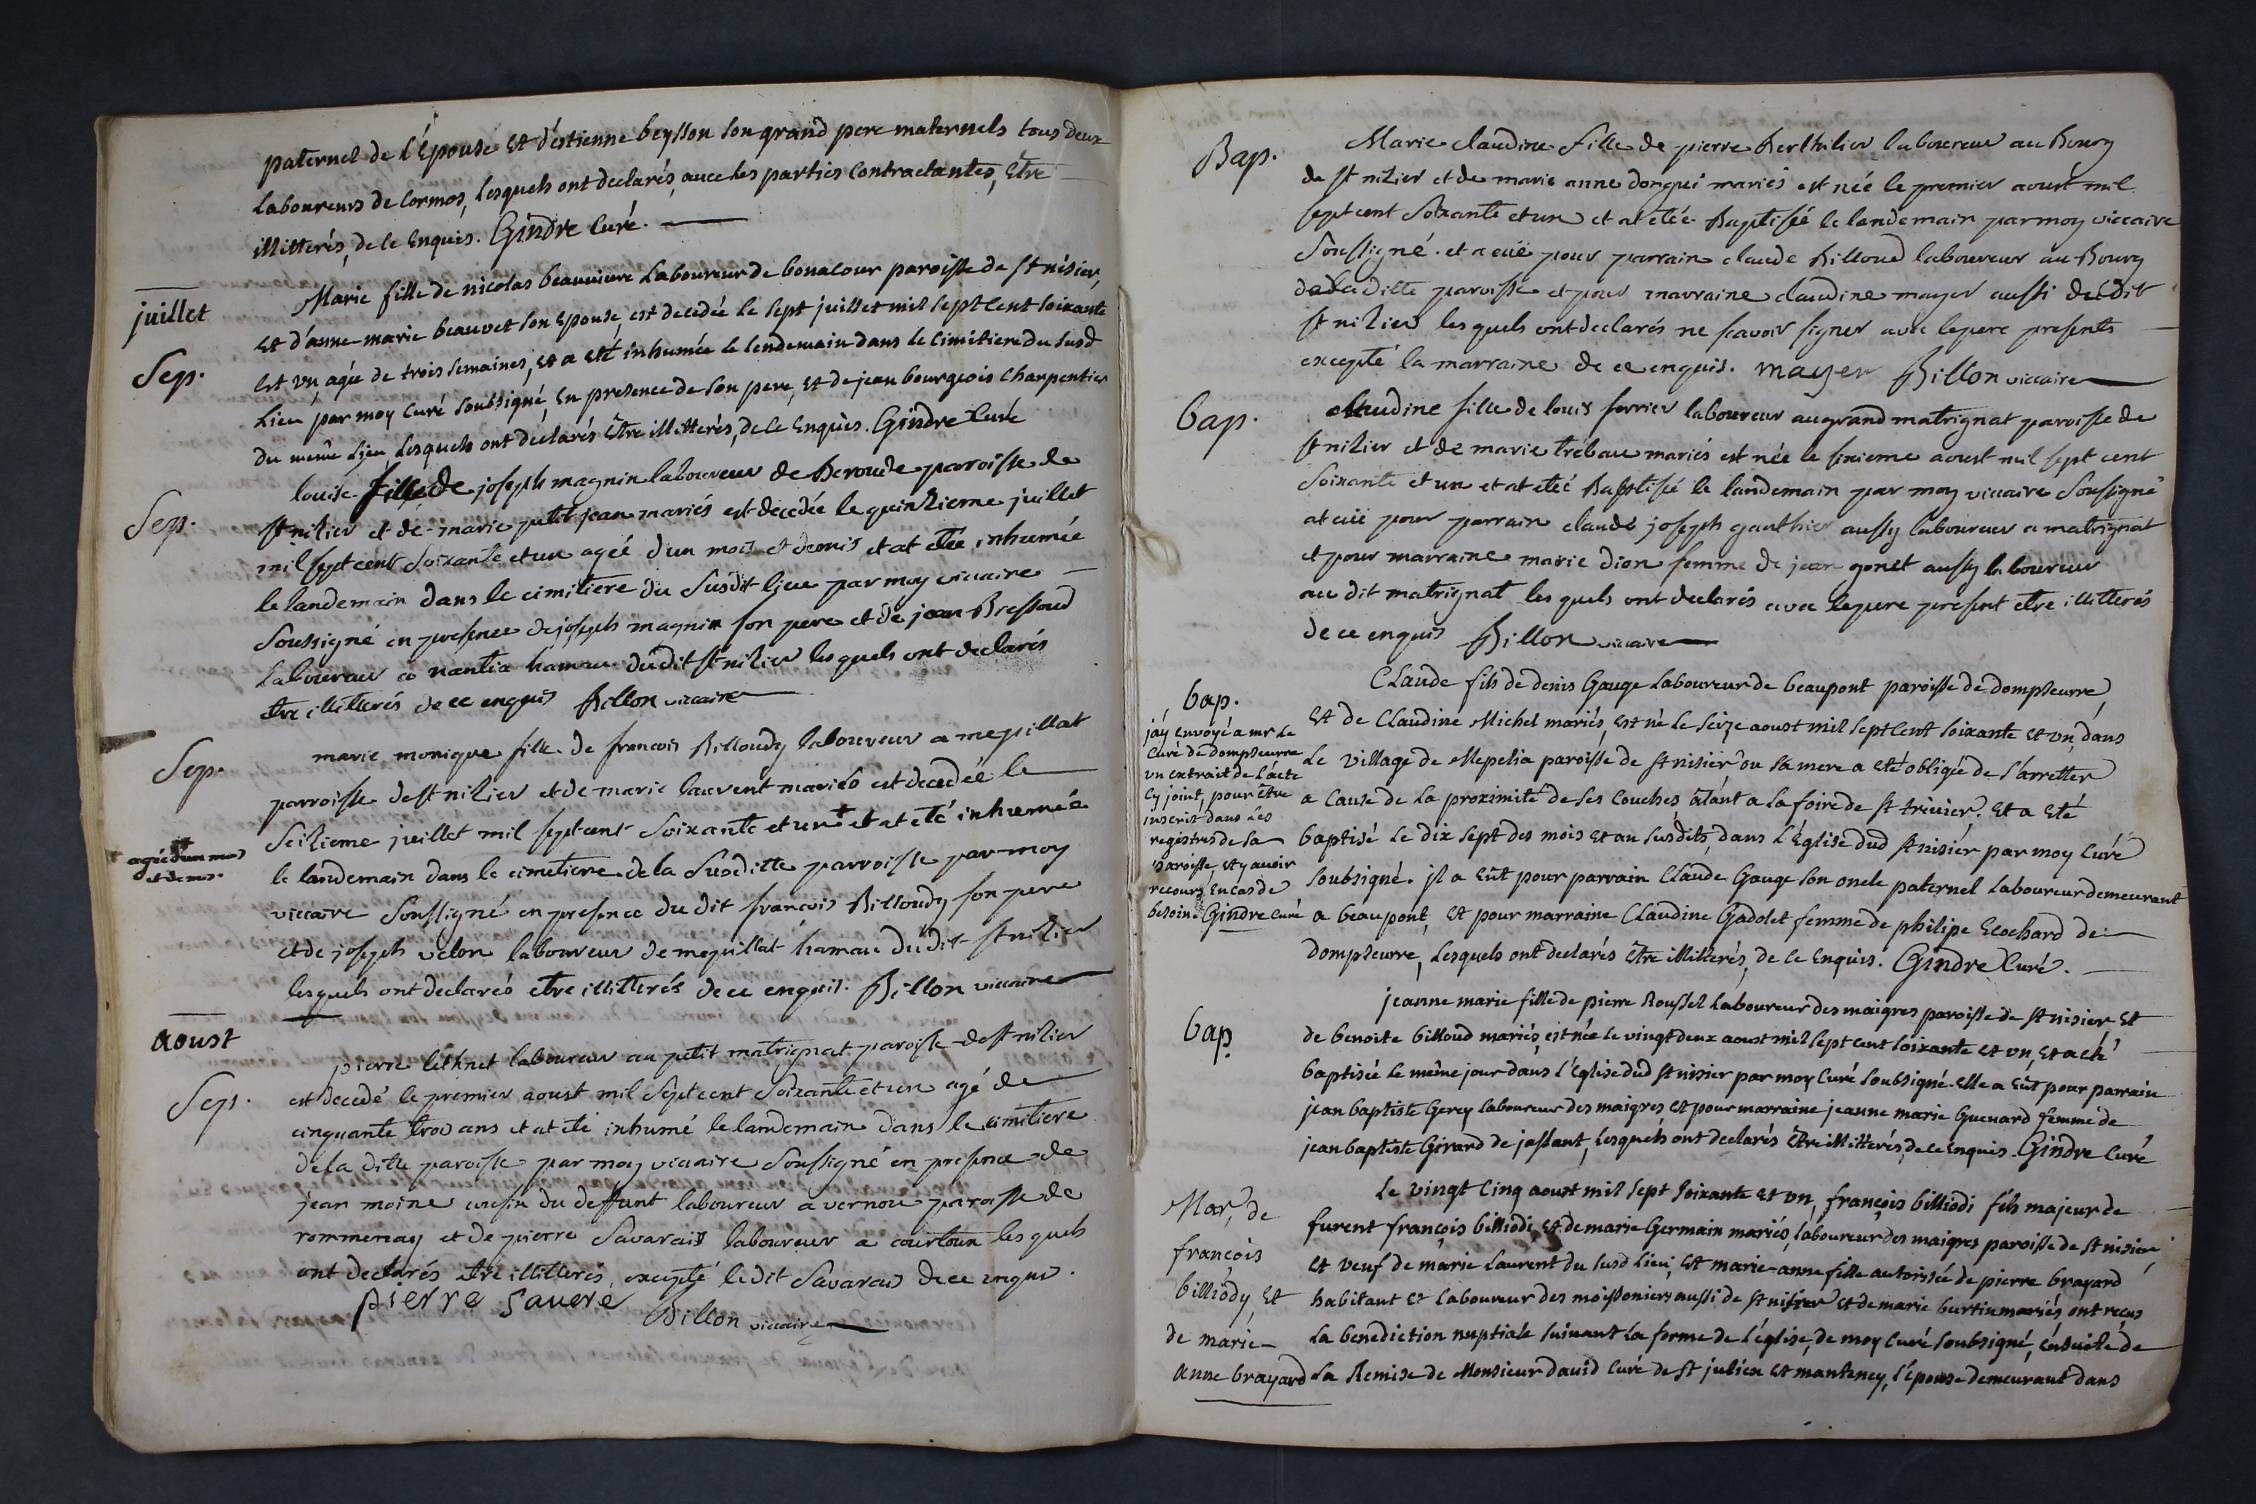 paternel de l'Épouse et d'éstienne beysson son grand pere maternels tous deux
laboureurs de Cormos, lesquels ont declarés, avec les parties Contractantes, être
illitterés, de ce Enquis. Gindre Curé.
juillet
Sep.
Marie fille de nicolas beauviere Laboureur de bonacour paroisse de st nisier,
et d'anne-marie beauvet son Epouse, est decedée le sept juillet mil sept Cent soixante
Et vn agée de trois semaines, et a eté inhumée le lendemain dans le Cimitiere du susd
Lieu par moy Curé soubsigné, en presence de son pere, et de jean bourgeois Charpentier
du même Lieu lesquels ont declarés être illitterés, de ce Enquis. Gindre Curé
Sep.
louise fille de joseph magnin laboureur de beroude paroisse de
st nitier et de marie petit jean mariés est decedée le quinzieme juillet
mil sept cent soixante et un ageé d'un mois et demis et at eteé inhumée
le landemain dans le cimitiere du susdit lieu par moy viccaire
soussigné en presence de joseph magnin son pere et de jean Bressoud
laboureur a nantia hamau dudit st nitier lesquels ont declarés
etre illitterés de ce enquis Billon viccaire
Sep.
marie monique fille de francois Billoudy laboureur a mepillat
parroisse de st nitier et de marie laurent mariés est decedée le
seitieme juillet mil sept cent soixante et un + et at eté inhumée
+ ageé d'un mois
et demis.
le landemain dans le cimetiere de la susditte parroisse par moy
viccaire soussigné en presence du dit francois Billoudy son pere
et de joseph velon laboureur de mepillat hamau dudit st nitier
lesquels ont declarés etre illitterés de ce enquis. Billon viccaire
aoust
Sep.
pierre lethnet laboureur au petit matrignat paroisse de st nitier
est decedé le premier aoust mil sept cent soixante et un agé de
cinquante trois ans et at eté inhumé le landemain dans le cimitiere
de la ditte paroisse par moy viccaire soussigné en presence de
jean moine cousin du deffunt laboureur a vernou paroisse de
rommenay et de pierre savarais laboureur a courtoux lesquels
ont declarés etre illitterés, excepté ledit savarais de ce enquis.
pierre savere
Billon viccaire
Bap.
Marie claudine fille de pierre berthilier laboureur au Bourg
de st nitier et de marie anne donguei mariés est née le premier aoust mil
sept cent soixante et un et at etéé Baptisée le landemain par moy viccaire
soussigné. et a euë pour parrain claude Billoud laboureur au Bourg
de la ditte paroisse et pour marraine claudine mayer aussi dudit
st nitier lesquels ont declarés ne scavoir signer avec le pere presents
excepté la marraine de ce enquis. mayer Billon viccaire
bap.
claudine fille de louis ferrier laboureur au grand matrignat paroisse de
st nitier et de marie trebau mariés est née le sixieme aoust mil sept cent
soixante et un et at eteé Baptisée le landemain par moy viccaire soussigné
at euë pour parrain claude joseph gauthier aussy laboureur a matrignat
et pour marraine marie dion femme de jean gonet aussy laboureur
au dit matrignat lesquels ont declarés avec le pere present etre illitterés
de ce enquis Billon viccaire
bap.
j'ay envoyé a mr le
Curé de dompseurre
vn extrait de l'acte
Cy joint, pour être
inscrit dans les
registres de sa
paroisse, et y avoir
recours en cas de
besoin. Gindre Curé
Claude fils de denis Gauge laboureur de beaupont paroisse de dompseurre,
Et de Claudine Michel mariés, est né le seize aoust mil sept Cent soixante et vn, dans
Le village de Mepelia paroisse de st nisier ou sa mere a eté obligé de s'arretter
a Cause de la proximité de ses Couches étant a la foire de st trivier. Et a eté
baptisé le dix sept des mois et an susdits, dans l'Église dud st nisier par moy Curé
soubsigné. jl a eut pour parrain Claude Gauge son oncle paternel laboureur demeurant
a beaupont, et pour marraine Claudine Gadolet femme de philipe Ecochard de
dompseurre, lesquels ont declarés être illitterés, de ce Enquis. Gindre Curé.
bap.
jeanne marie fille de pierre Roussel laboureur des maigres paroisse de st nisier et
de benoite billoud mariés, est née le vingt deux aoust mil sept cent soixante et vn, et a eté
baptisée le même jour dans l'église dud st nisier par moy Curé soubsigné. elle a eut pour parrain
jean baptiste Gerey laboureur des maigres et pour marraine jeanne marie Guenard femme de
jean baptiste Girard de jassant, lesquels ont declarés être illitterés, de ce enquis. Gindre Curé
Mar, de
françois
billiody, et
de marie-
anne brayard
Le vingt Cinq aoust mil sept soixante et vn, françois billiodi fils majeur de
furent françois billiodi, et de marie Germain mariés, laboureur des maigres paroisse de st nisier,
et veuf de marie Laurent du susd lieu, et marie-anne fille autorisée de pierre brayard
habitant et laboureur des moissoniers aussi de st nisier et de marie burtin mariés, ont recus
la benediction nuptiale suivant la forme de l'église, de moy Curé soubsigné, ensuite de
La Remise de Monsieur david Curé de st julien et mantenay, l'épouse demeurant dans